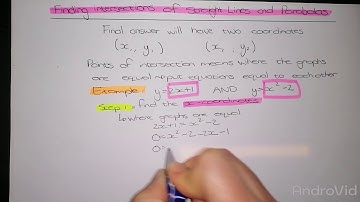 Finding intersections of Straight Lines and Parabolas
Final answer will have two coordinates
(x₁, y₁) (x₂, y₂)
Points of intersection means where the graphs
are equal → put equations equal to each other
Example y=2x+1 AND y=x²-2
Step 1: find the x-coordinates
↳ where graphs are equal
2x+1 = x²-2
0=x²-2-2x-1
0=
AndroVid